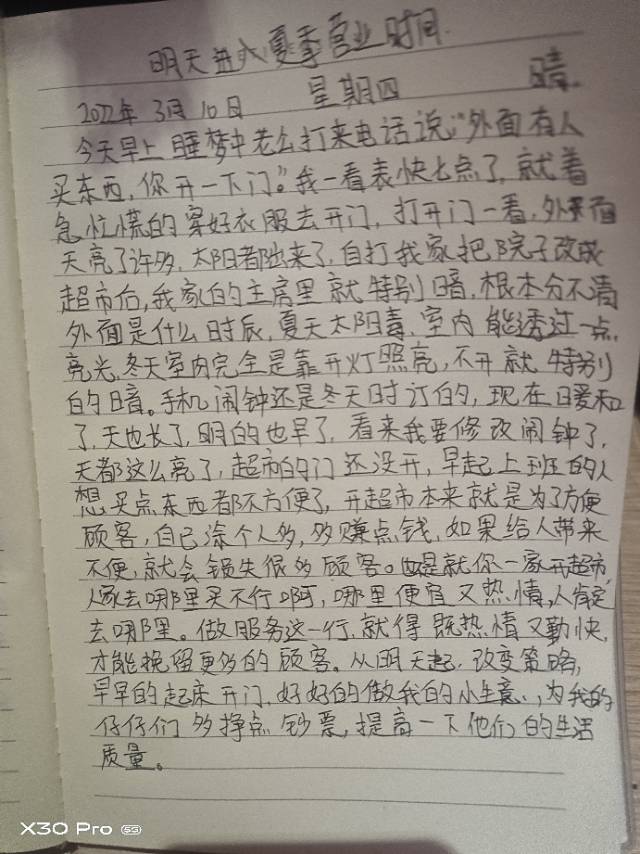 明天进入夏季营业时间.
2022年 3月 10日 星期四 晴.
今天早上睡梦中老公打来电话说:"外面有人
买东西,你开一下门。"我一看表快七点了,就着
急忙慌的穿好衣服去开门,打开门一看,外面
天亮了许多,太阳都出来了,自打我家把院子改成
超市后,我家的主房里就特别暗,根本分不清
外面是什么时辰,夏天太阳毒,室内能透过一点
亮光,冬天室内完全是靠开灯照亮,不开就特别
的暗。手机闹钟还是冬天时订的,现在暖和
了,天也长了,明的也早了,看来我要修改闹钟了,
天都这么亮了,超市的门还没开,早起上班的人
想买点东西都不方便了,开超市本来就是为了方便
顾客,自己涂个人多,多赚点钱,如果给人带来
不便,就会损失很多顾客。就你一家开超市,
人家去哪里买不行啊,哪里便宜又热情,人肯定
去哪里。做服务这一行,就得既热情又勤快,
才能挽留更多的顾客。从明天起,改变策略,
早早的起床开门,好好的做我的小生意,,为我的
仔仔们多挣点钞票,提高一下他们的生活
质量。
X30 Pro 5G